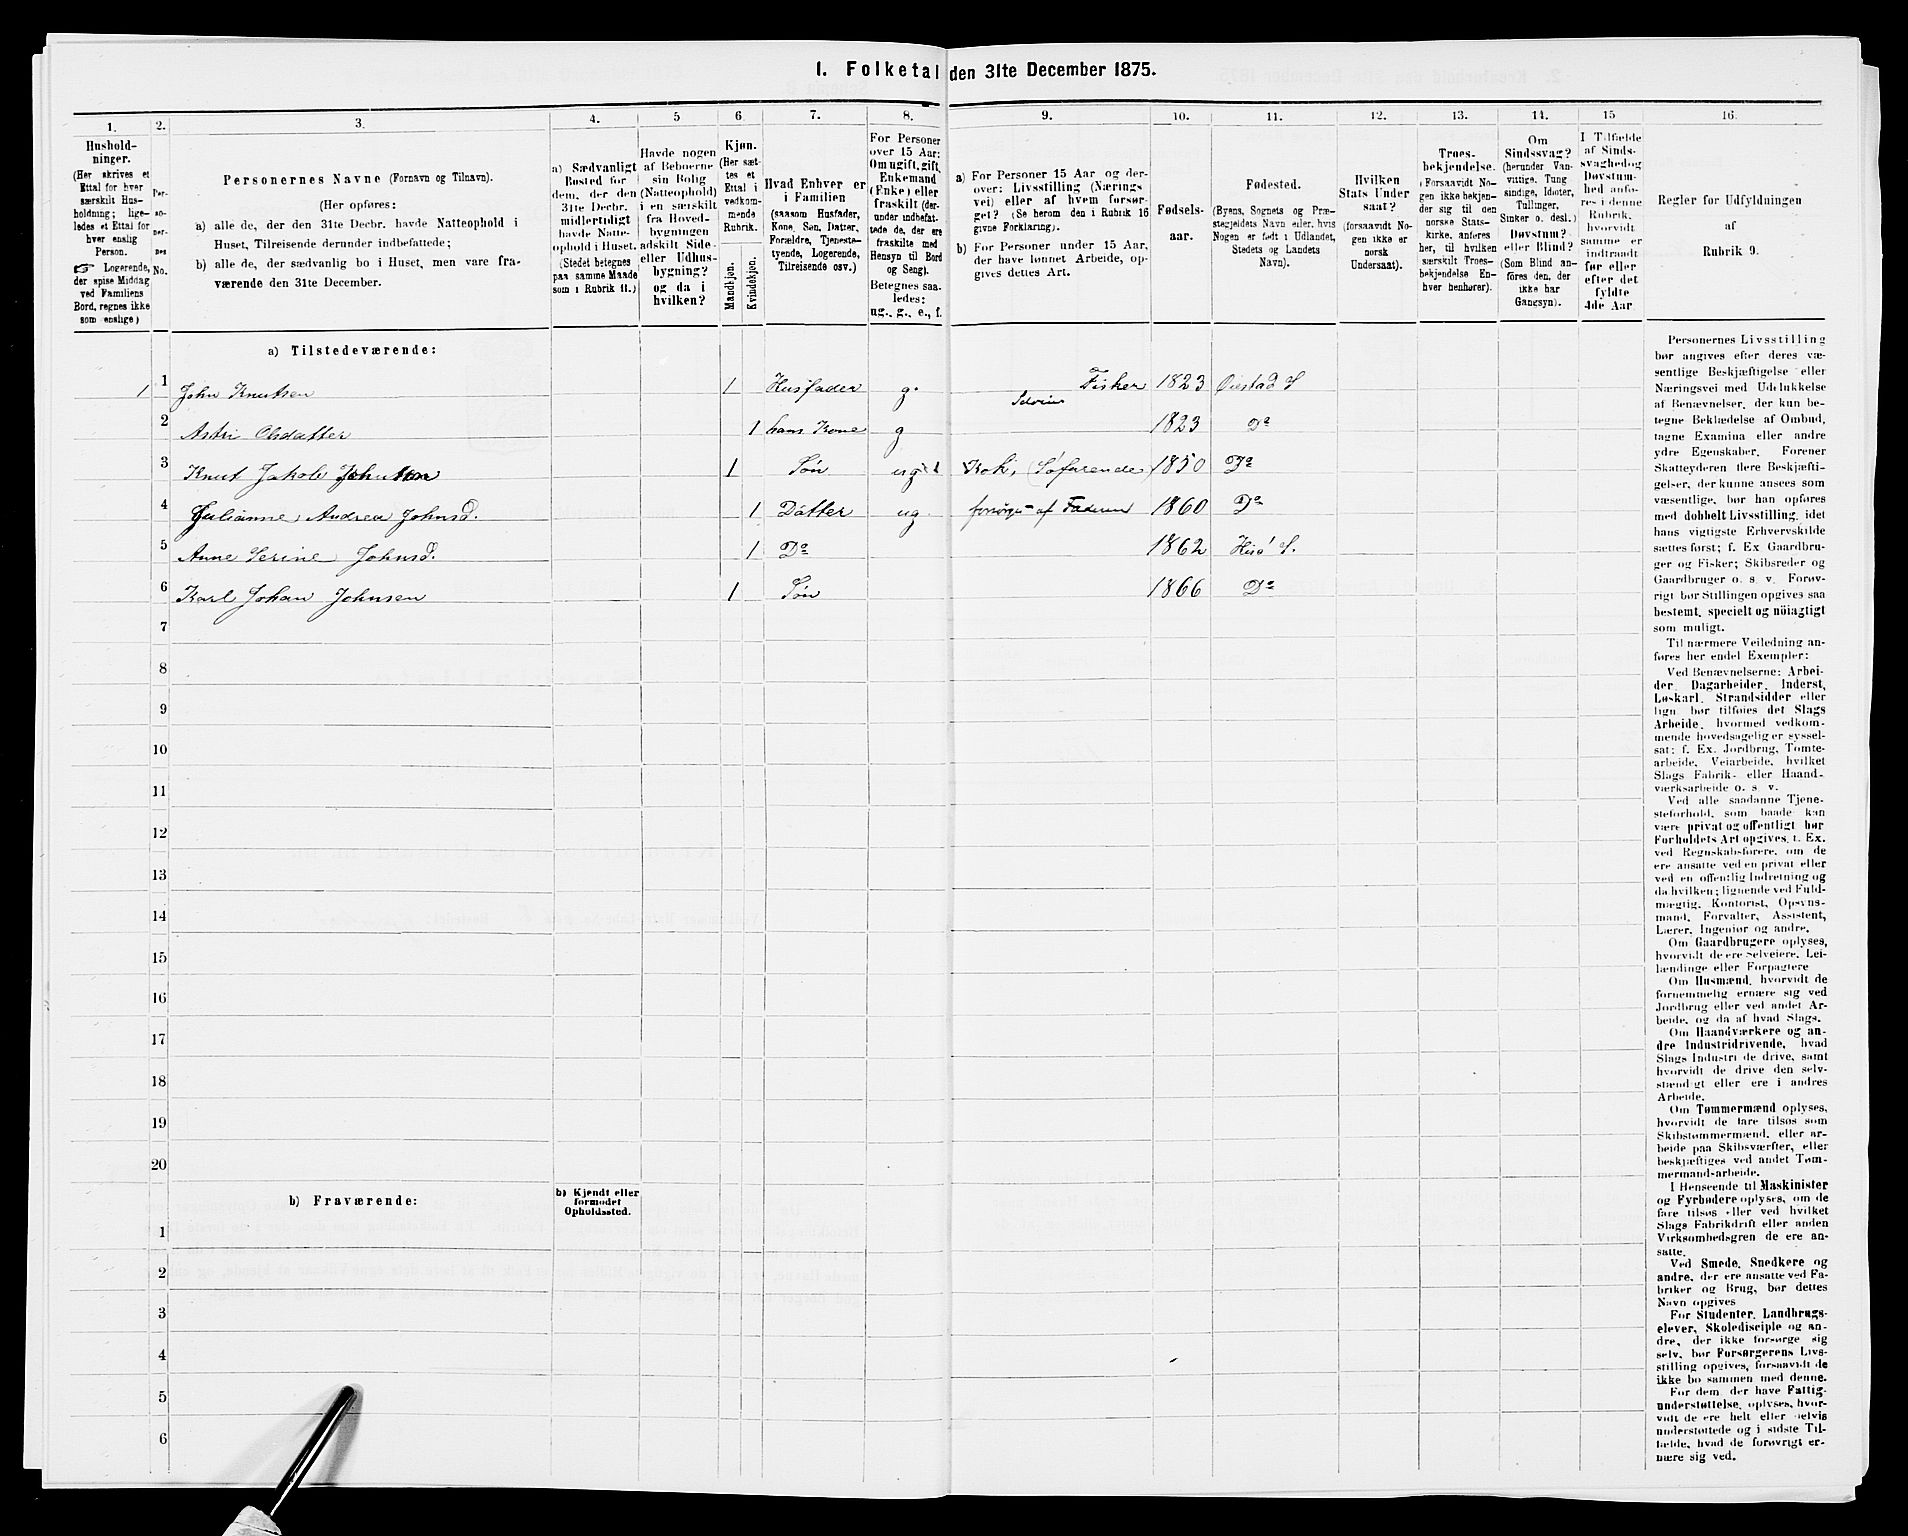 1. Folketal den 31te December 1875.
1. 2. 3. 4. 5 6. 7. 8. 9. 10. 11. 12. 13. 14. 15 16.
Hushold-
ninger.
(Her skrives et
Ettal for hver
særskilt Hus-
holdning; lige-
ledes et Ettal for
hver enslig
Person.
☞ Logerende,
der spise Middag
ved Familiens
Bord, regnes ikke
som enslige)
Per-
so-
ner-
nes
No.
Personernes Navne (Fornavn og Tilnavn).
(Her opføres:
a) alle de, der den 31te Decbr. havde Natteophold i
Huset, Tilreisende derunder indbefattede;
b) alle de, der sædvanlig bo i Huset, men vare fra-
værende den 31te December.
a) Sædvanligt
Bosted for
dem, der den
31te Decbr.
midlertidigt
havde Natte-
ophold i Huset.
(Stedet betegnes
paa samme Maade
som i Rubrik 11.)
Havde nogen
af Beboerne
sin Bolig
(Natteophold)
i en særskilt
fra Hoved-
bygningen
adskilt Side-
eller Udhus-
bygning?
og da i
hvilken?
Kjøn.
(Her sæt-
tes et
Ettal i
vedkom-
mende
Rubrik.
Mandkjøn.
Kvindekjøn.
Hvad Enhver er
i Familien
(saasom Husfader,
Kone, Søn, Datter,
Forældre, Tjeneste-
tyende, Logerende,
Tilreisende osv.)
For Personer
over 15 Aar:
Om ugift, gift,
Enkemand
(Enke) eller
fraskilt (der-
under indbefat-
tede de, der ere
fraskilte med
Hensyn til Bord
og Seng).
Betegnes saa-
ledes:
ug., g., e., f.
a) For Personer 15 Aar og der-
over: Livsstilling (Nærings
vei) eller af hvem forsør-
get? (Se herom den i Rubrik 16
givne Forklaring).
b) For Personer under 15 Aar,
der have lønnet Arbeide, op-
gives dettes Art.
Fødsels-
aar.
Fødested.
(Byens, Sognets og Præ-
stegjeldets Navn eller, hvis
Nogen er født i Udlandet,
Stedets og Landets
Navn).
Hvilken
Stats Under
saat?
(forsaavidt No-
gen ikke er
norsk
Undersaat).
Troes-
bekjendelse.
(Forsaavidt No-
gen ikke bekjen-
der sig til den
norske Stats-
kirke, anføres
her, til hvilken
særskilt Troes-
bekjendelse En-
hver henhører).
Om
Sindssvag?
(herunder Van-
vittige, Tung
sindige, Idioter,
Tullinger,
Sinker o. desl.)
Døvstum?
eller Blind?
(Som Blind an-
føres den, der
ikke har
Gangsyn).
I Tilfælde
af Sinds-
svaghed og
Døvstum-
hed anfø-
res i denne
Rubrik,
hvorvidt
samme er
indtraadt
før eller
efter det
fyldte
4de Aar
Regler for Udfyldningen
af
Rubrik 9.
a) Tilstedeværende:
1 1 John Knutsen 1 Husfader g. Fisker 1823 Øiestad S
2 Astri Olsdatter 1 hans Kone g 1823 Do
3 Knut Jakob Johnsen 1 Søn ug Kok, (Søfarende) 1850 Do
4 Julianne Andrea Johnsd. 1 Datter ug. forsørges af Faderen 1860 Do
5 Anne Serine Johnsd. 1 Do 1862 Hisø S.
6 Karl Johan Johnsen 1 Søn 1866 Do
7
8
9
10
11
12
13
14
15
16
17
18
19
20
b) Fraværende:
b) Kjendt eller
formodet
Opholdssted.
1
2
3
4
5
6
Personernes Livsstilling
bør angives efter deres væ-
sentlige Beskjæftigelse eller
Næringsvei med Udelukkelse
af Benævnelser, der kun be-
tegne Beklædelse af Ombud,
tagne Examina eller andre
ydre Egenskaber. Forener
Skatteyderen flere Beskjæfti-
gelser, der kunne ansees som
væsentlige, bør han opføres
med dobbelt Livsstilling, idet
hans vigtigste Erhvervskilde
sættes først; f. Ex Gaardbru-
ger og Fisker; Skibsreder og
Gaardbruger o. s. v. Forøv-
rigt bør Stillingen opgives saa
bestemt, specielt og nöiagtigt
som muligt.
Til nærmere Veiledning an-
føres her endel Exempler:
Ved Benævnelserne: Arbei-
der, Dagarbeider, Inderst,
Løskarl, Strandsidder eller
lign bør tilføies det Slags
Arbeide, hvormed vedkom-
mende hovedsagelig er syssel-
sat; f. Ex. Jordbrug, Tomte-
arbeide, Veiarbeide, hvilket
Slags Fabrik- eller Haand-
værksarbeide o. s. v.
Ved alle saadanne Tjene-
steforhold, som baade kan
være privat og offentligt bør
Forholdets Art opgives, t. Ex.
ved Regnskabsførere, om de
ere ansatte ved en privat eller
ved en offentlig Indretning og
da hvilken; lignende ved Fuld-
mægtig, Kontorist, Opsyns-
mand, Forvalter, Assistent,
Lærer, Ingeniør og andre.
Om Gaardbrugere oplyses,
hvorvidt de ere Selveiere, Lei-
lændinge eller Forpagtere
Om Husmænd, hvorvidt de
fornemmelig ernære sig ved
Jordbrug eller ved andet Ar-
beide, og da af hvad Slags.
Om Haandværkere og an-
dre Industridrivende, hvad
Slags Industri de drive, samt
hvorvidt de drive den selv-
stændigt eller ere i andres
Arbeide.
Om Tømmermænd oplyses,
hvorvidt de fare tilsøs som
Skibstømmermænd, eller ar-
beide paa Skibsværfter, eller
beskjæftiges ved andet Tøm-
mermandsarbeide.
I Henseende til Maskinister
og Fyrbødere oplyses, om de
fare tilsøs eller ved hvilket
Slags Fabrikdrift eller anden
Virksomhedsgren de ere an-
satte.
Ved Smede, Snedkere og
andre, der ere ansatte ved Fa-
briker og Brug, bør dettes
Navn opgives
For Studenter, Landbrugs-
elever, Skoledisciple og an-
dre, der ikke forsørge sig
selv, bør Forsørgerens Livs-
stilling opgives, forsaavidt de
ikke bo sammen med denne.
For dem, der have Fattig-
understøttelse, oplyses, hvor-
vidt de ere helt eller delvis
understøttede og i sidste Til-
fælde, hvad de forøvrigt er-
nære sig ved.